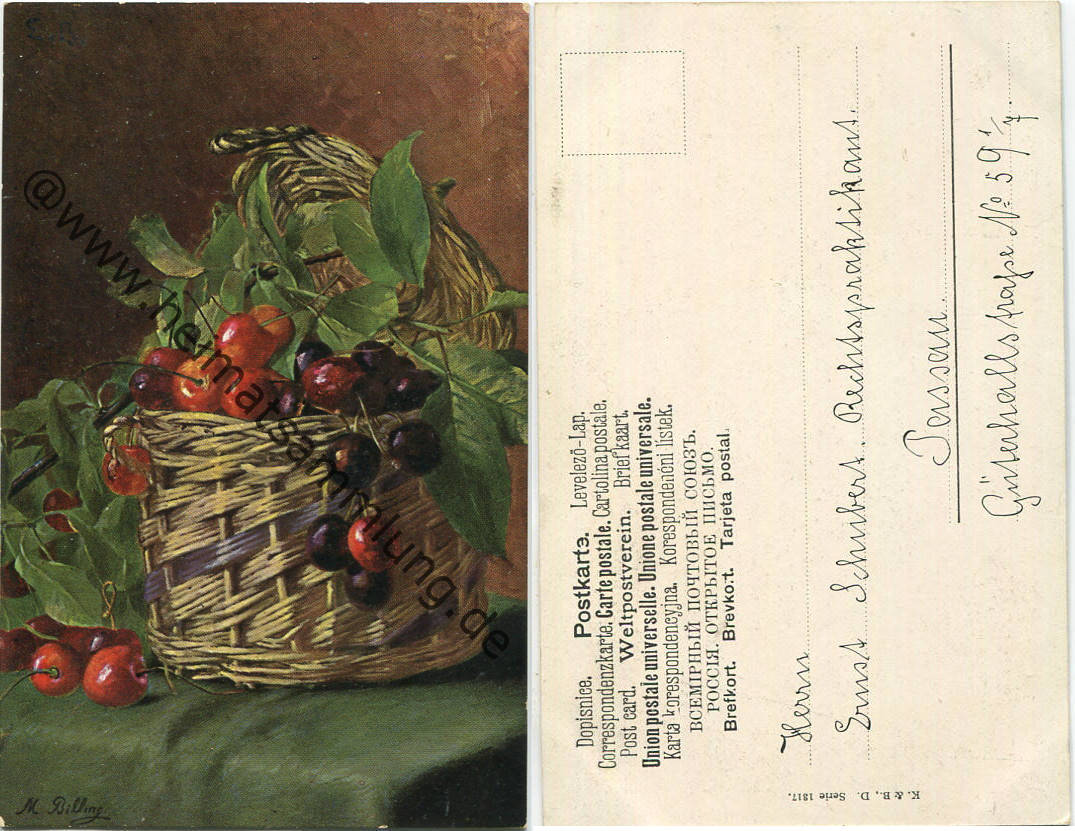 @www.heimatsammlung.de
M. Billing.
Dopisnice. Postkarte. Levelező-Lap.
Correspondenzkarte. Carte postale. Cartolina postale.
Post card. Weltpostverein. Briefkaart.
Union postale universelle. Unione postale universale.
Karta korespondencyjna. Korespondenční lístek.
ВСЕМІРНЫЙ ПОЧТОВЫЙ СОЮЗЪ.
РОССІЯ. ОТКРЫТОЕ ПИСЬМО.
Brefkort. Brevkort. Tarjeta postal.
Herrn
Ernst Schubert. Rechtspraktikant.
Passau.
Güterhallstraße No 59 1/7.
K. & B., D. Serie 1317.